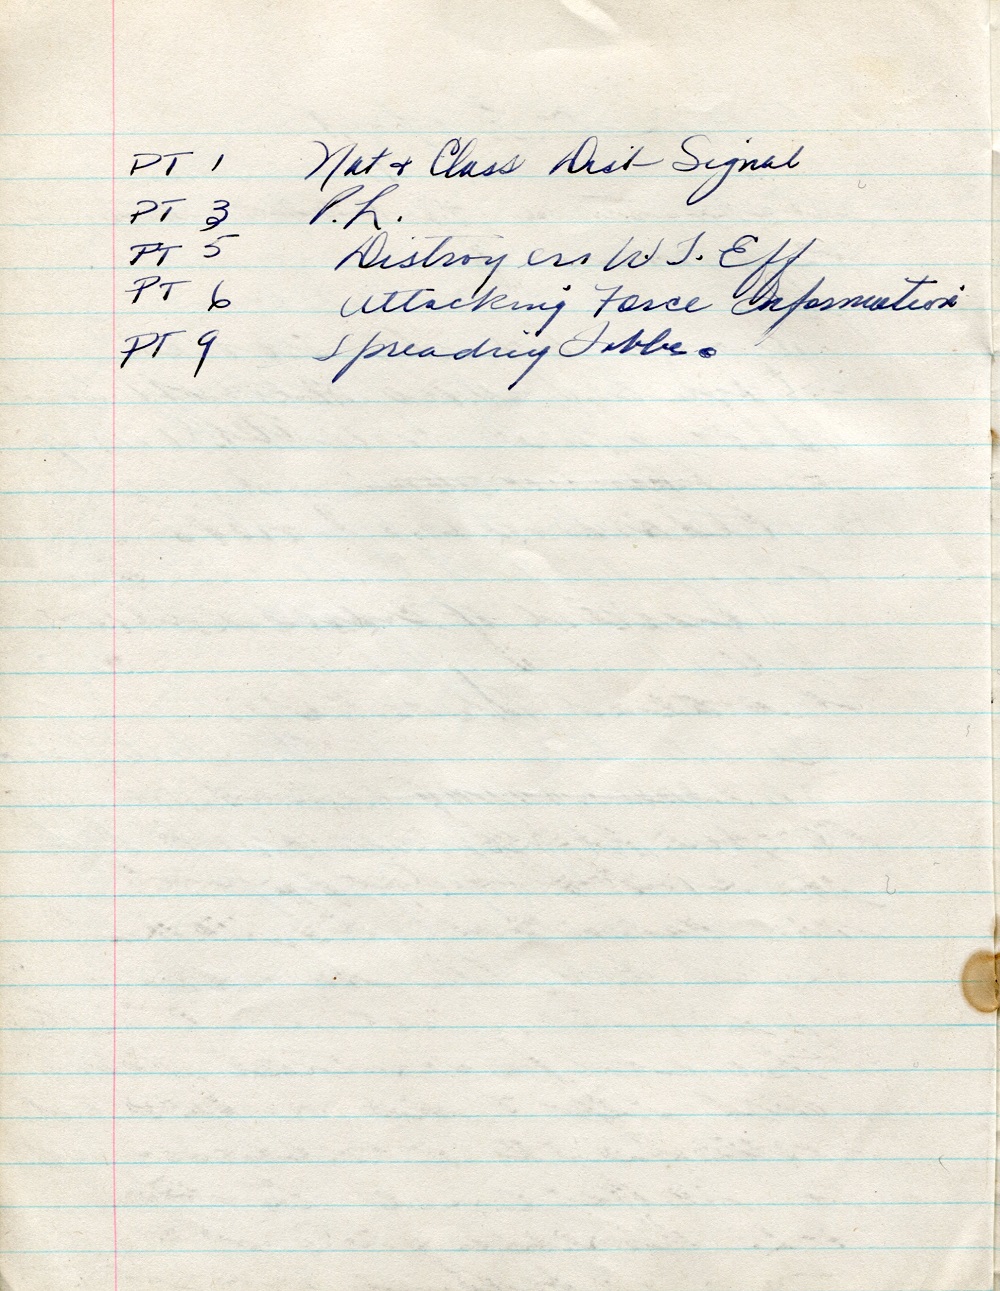 PT 1 Nat & Class Dist Signal
PT 3 P.L.
PT 5 Distroyers W.T. Eff
PT 6 Attacking Force Information
PT 9 Spreading